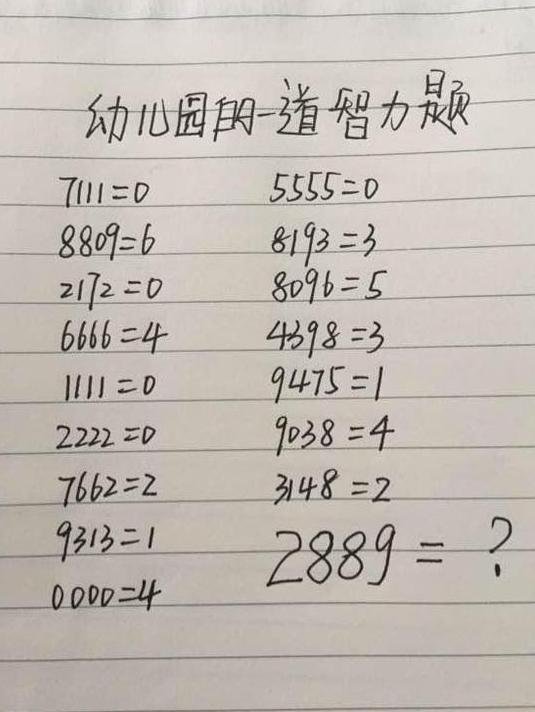 幼儿园的一道智力题
7111=0
8809=6
2172=0
6666=4
1111=0
2222=0
7662=2
9313=1
0000=4
5555=0
8193=3
8096=5
4398=3
9475=1
9038=4
3148=2
2889=?